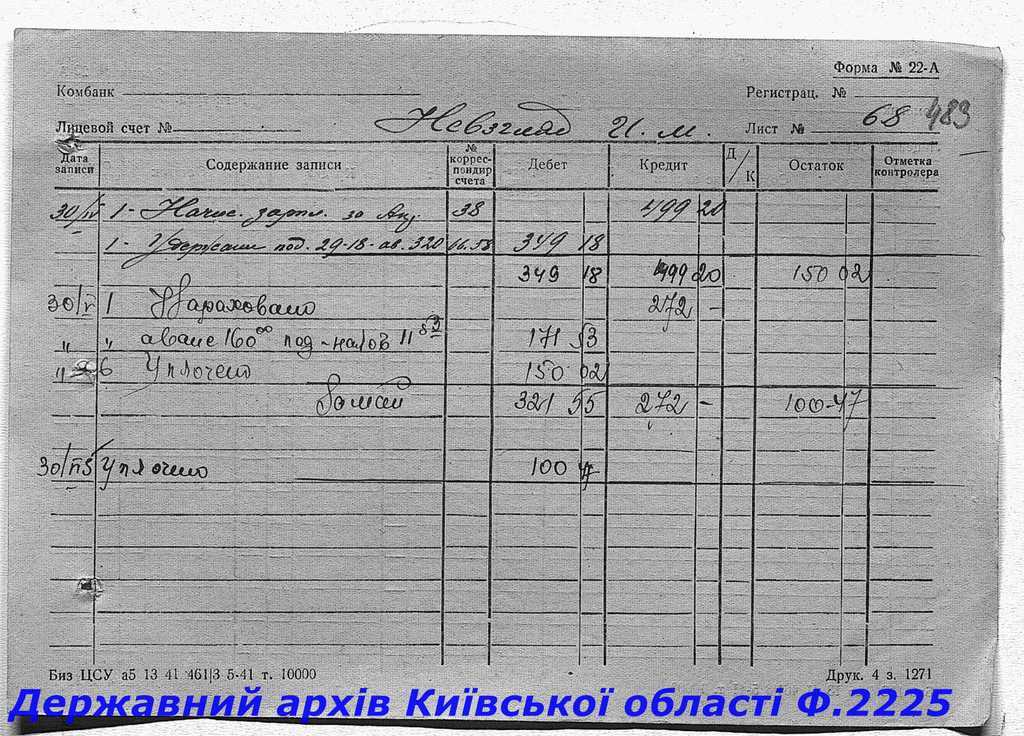 Форма № 22-А
Комбанк
Регистрац. №
Лицевой счет № Невзгляд И. М. Лист № 68 483
Дата записи Содержание записи № коррес-пондир счета Дебет Кредит Д/К Остаток Отметка контролера
30/IV 1- Начис. зарпл. за 38 499 20
1- Удержани под. 29-18-ав. 320 16.58 349 18
349 18 499 20 150 02
30/V 1 Нараховано 272 -
" " аванс 160 00 под-налог 11 53 171 53
" 6 Уплочено 150 02
321 55 272 - 100-47
30/ Уплочено 100 47
Биз ЦСУ а5 13 41 461|3 5-41 т. 10000 Друк. 4 з. 1271
Державний архів Київської області Ф.2225